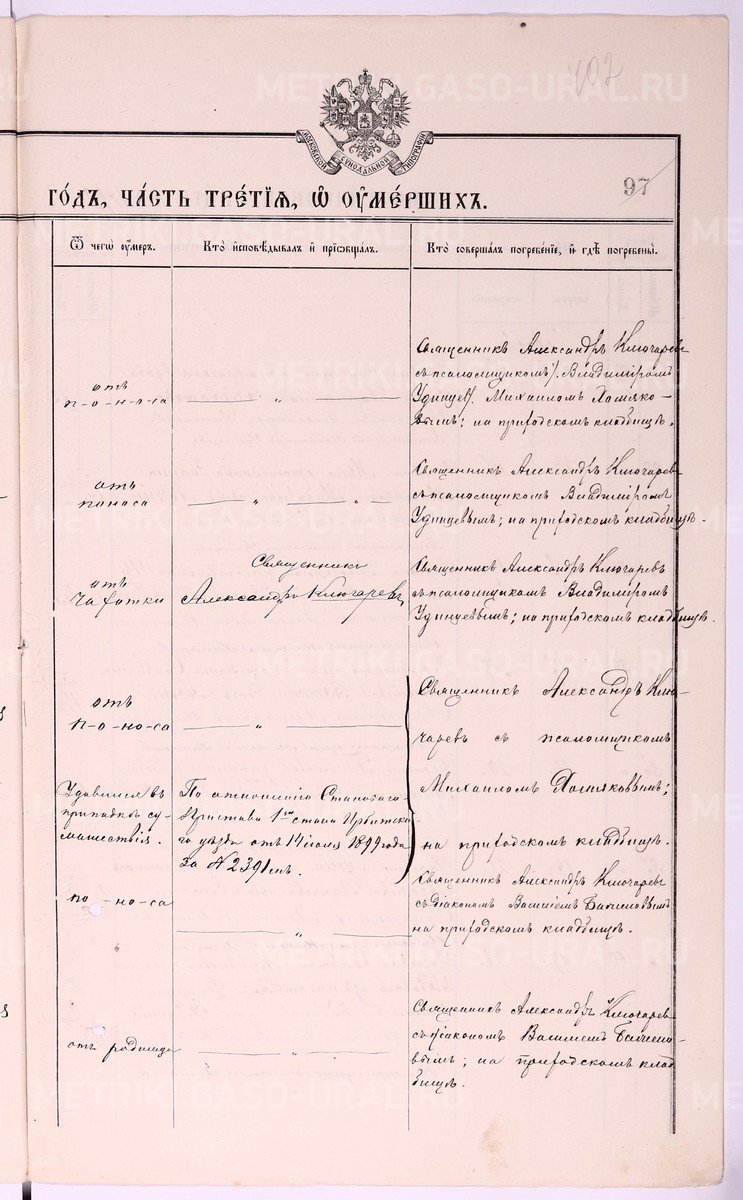 402
МОСКОВСКОЙ СѴНОДАЛЬНОЙ ТИПОГРАФІИ
97
ГО́ДЪ, ЧА́СТЬ ТРЕ́ТІѦ, Ѡ҆ ОУ҆МЕ́РШИХЪ.
Ѿ чегѡ̀ оу҆́меръ.
Кто̀ и҆сповѣ́дывалъ и҆ прїѡбща́лъ.
Кто̀ соверша́лъ погребе́нїе, и҆ гдѣ̀ погребены̀.
отъ
п-о-н-о-са
— „ —
Священникъ Александръ Ключаревъ
съ псаломщикомъ /. Владиміромъ
Удинцев/. Михаиломъ Хомяко-
вымъ; на приходскомъ кладбищѣ.
отъ
поноса
— „ — „ —
Священникъ Александръ Ключаревъ
съ псаломщикомъ Владиміромъ
Удинцевымъ; на приходскомъ кладбищѣ.
отъ
Чахотки
Священникъ
Александръ Ключаревъ
Священникъ Александръ Ключаревъ
съ псаломщикомъ Владиміромъ
Удинцевымъ; на приходскомъ кладбищѣ.
отъ
п-о-но-са
— „ —
Священникъ Александръ Клю-
чаревъ съ псаломщикомъ
Михаиломъ Хомяковымъ;
на приходскомъ кладбищѣ.
Удавился въ
припадкѣ су-
масшествія.
По отношенію Становаго
Пристава 1го стана Ирбитска-
го уѣзда отъ 14 іюля 1899 года
за № 2391мъ.
по-но-са
— „ —
Священникъ Александръ Ключаревъ
съ діакономъ Василіемъ
на приходскомъ кладбищѣ.
отъ родимца
— „ —
Священникъ Александръ Ключаревъ
съ діакономъ Василіемъ
вымъ; на приходскомъ клад-
бищѣ.
METRIKI.GASO-URAL.RU